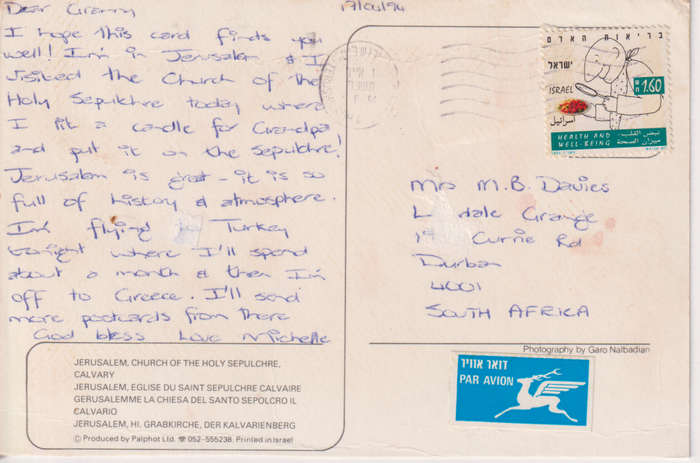 Dear Granny
17/04/94
I hope this card finds you
well! I'm in Jerusalem & I
visited the Church of the
Holy Sepulchre today where
I lit a candle for Grandpa
and put it on the sepulchre!
Jerusalem is great - it is so
full of history & atmosphere.
I'm flying to Turkey
tonight where I'll spend
about a month & then I'm
off to Greece. I'll send
more postcards from there
God bless Love Michelle
בריאות האדם
ישראל
ISRAEL
1.60
اسرائيل
HEALTH AND
WELL-BEING
Mrs M.B. Davies
dale Grange
Currie Rd
Durban
4001
SOUTH AFRICA
Photography by Garo Nalbadian
דואר אוויר
PAR AVION
JERUSALEM, CHURCH OF THE HOLY SEPULCHRE,
CALVARY
JERUSALEM, EGLISE DU SAINT SEPULCRE CALVAIRE
GERUSALEMME LA CHIESA DEL SANTO SEPOLCRO IL
CALVARIO
JERUSALEM, HI. GRABKIRCHE, DER KALVARIENBERG
© Produced by Palphot Ltd. ☎ 052-555238. Printed in Israel